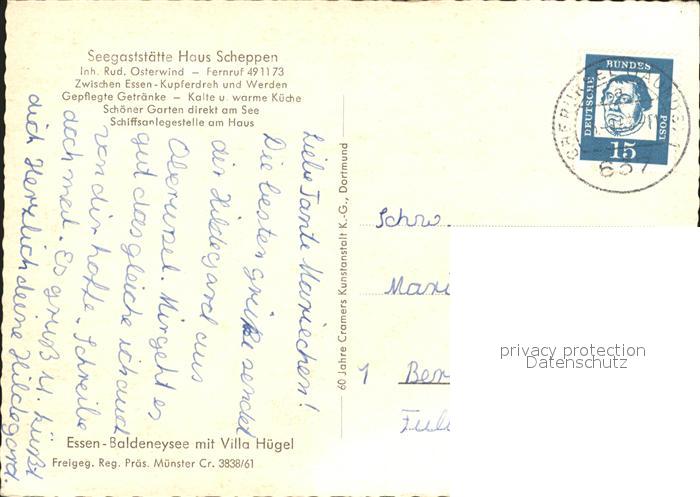 Seegaststätte Haus Scheppen
Inh. Rud. Osterwind – Fernruf 491173
Zwischen Essen-Kupferdreh und Werden
Gepflegte Getränke – Kalte u. warme Küche
Schöner Garten direkt am See
Schiffsanlegestelle am Haus
Liebe Tante Mariechen!
Die besten Grüße sendet
dir Hildegard aus
Oberursel. Mir geht es
gut das gleiche ich auch
von dir hoffe. Schreibe
doch mal. Es grüßt u. küßt
dich Herzlich deine Hildegard.
60 Jahre Cramers Kunstanstalt K.-G., Dortmund
DEUTSCHE
BUNDES
POST
15
637
Schw.
Mari
1 Ber
Ful
privacy protection
Datenschutz
Essen-Baldeneysee mit Villa Hügel
Freigeg. Reg. Präs. Münster Cr. 3838/61